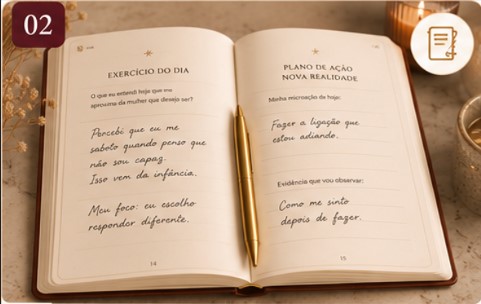 02
EXERCÍCIO DO DIA
O que eu entendi hoje que me
aproxima da mulher que desejo ser?
Percebi que eu me
saboto quando penso que
não sou capaz.
Isso vem da infância.
Meu foco: eu escolho
responder diferente.
14
PLANO DE AÇÃO
NOVA REALIDADE
Minha microação de hoje:
Fazer a ligação que
estou adiando.
Evidência que vou observar:
Como me sinto
depois de fazer.
15